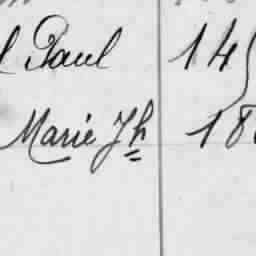 Paul 14
Marie Jh 18